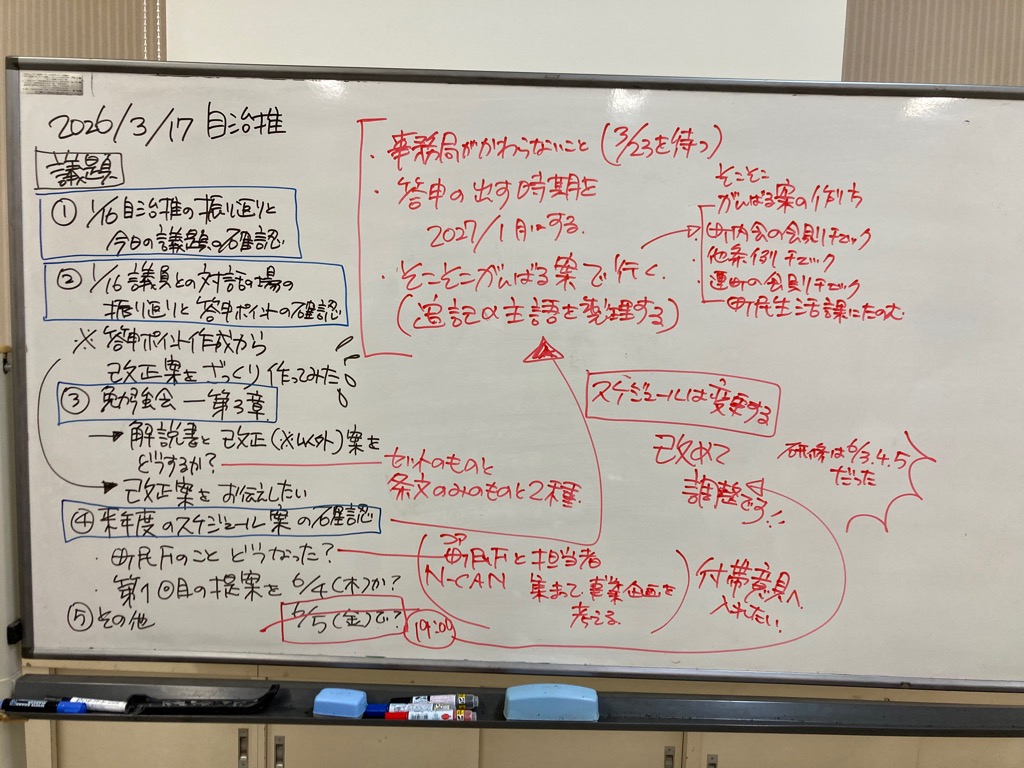 2026/3/17 自治推
議題
① 1/16 自治推の振り返りと
今日の議題の確認
② 1/16 議員との対話の場の
振り返りと答申ポイントの確認
※ 答申ポイント作成から
改正案をざっくり作ってみた
③ 勉強会 ー 第3章
→ 解説書と改正(※以外)案を
どうするか?
改正案をお伝えしたい
④ 来年度のスケジュール案の確認
・町民Fのこと どうなった?
・第1回目の提案を 6/4(木)か?
6/5(金)で?
19:00
⑤ その他
・事務局がかわらないこと (3/23を待つ)
・答申の出す時期を
2027/1月にする
・そこそこがんばる案で行く
(追記の主語を整理する)
そこそこ
がんばる案の作り方
・町内会の会則チェック
・他条例チェック
・連町の会則チェック
町民生活課にたのむ
セットのものと
条文のみのものと2種
スケジュールは変更する
改めて
調整する!!
研修は6/3.4.5
だった
町民Fと担当者
N-CAN
集まって事業企画を
考える
付帯意見へ
入れたい